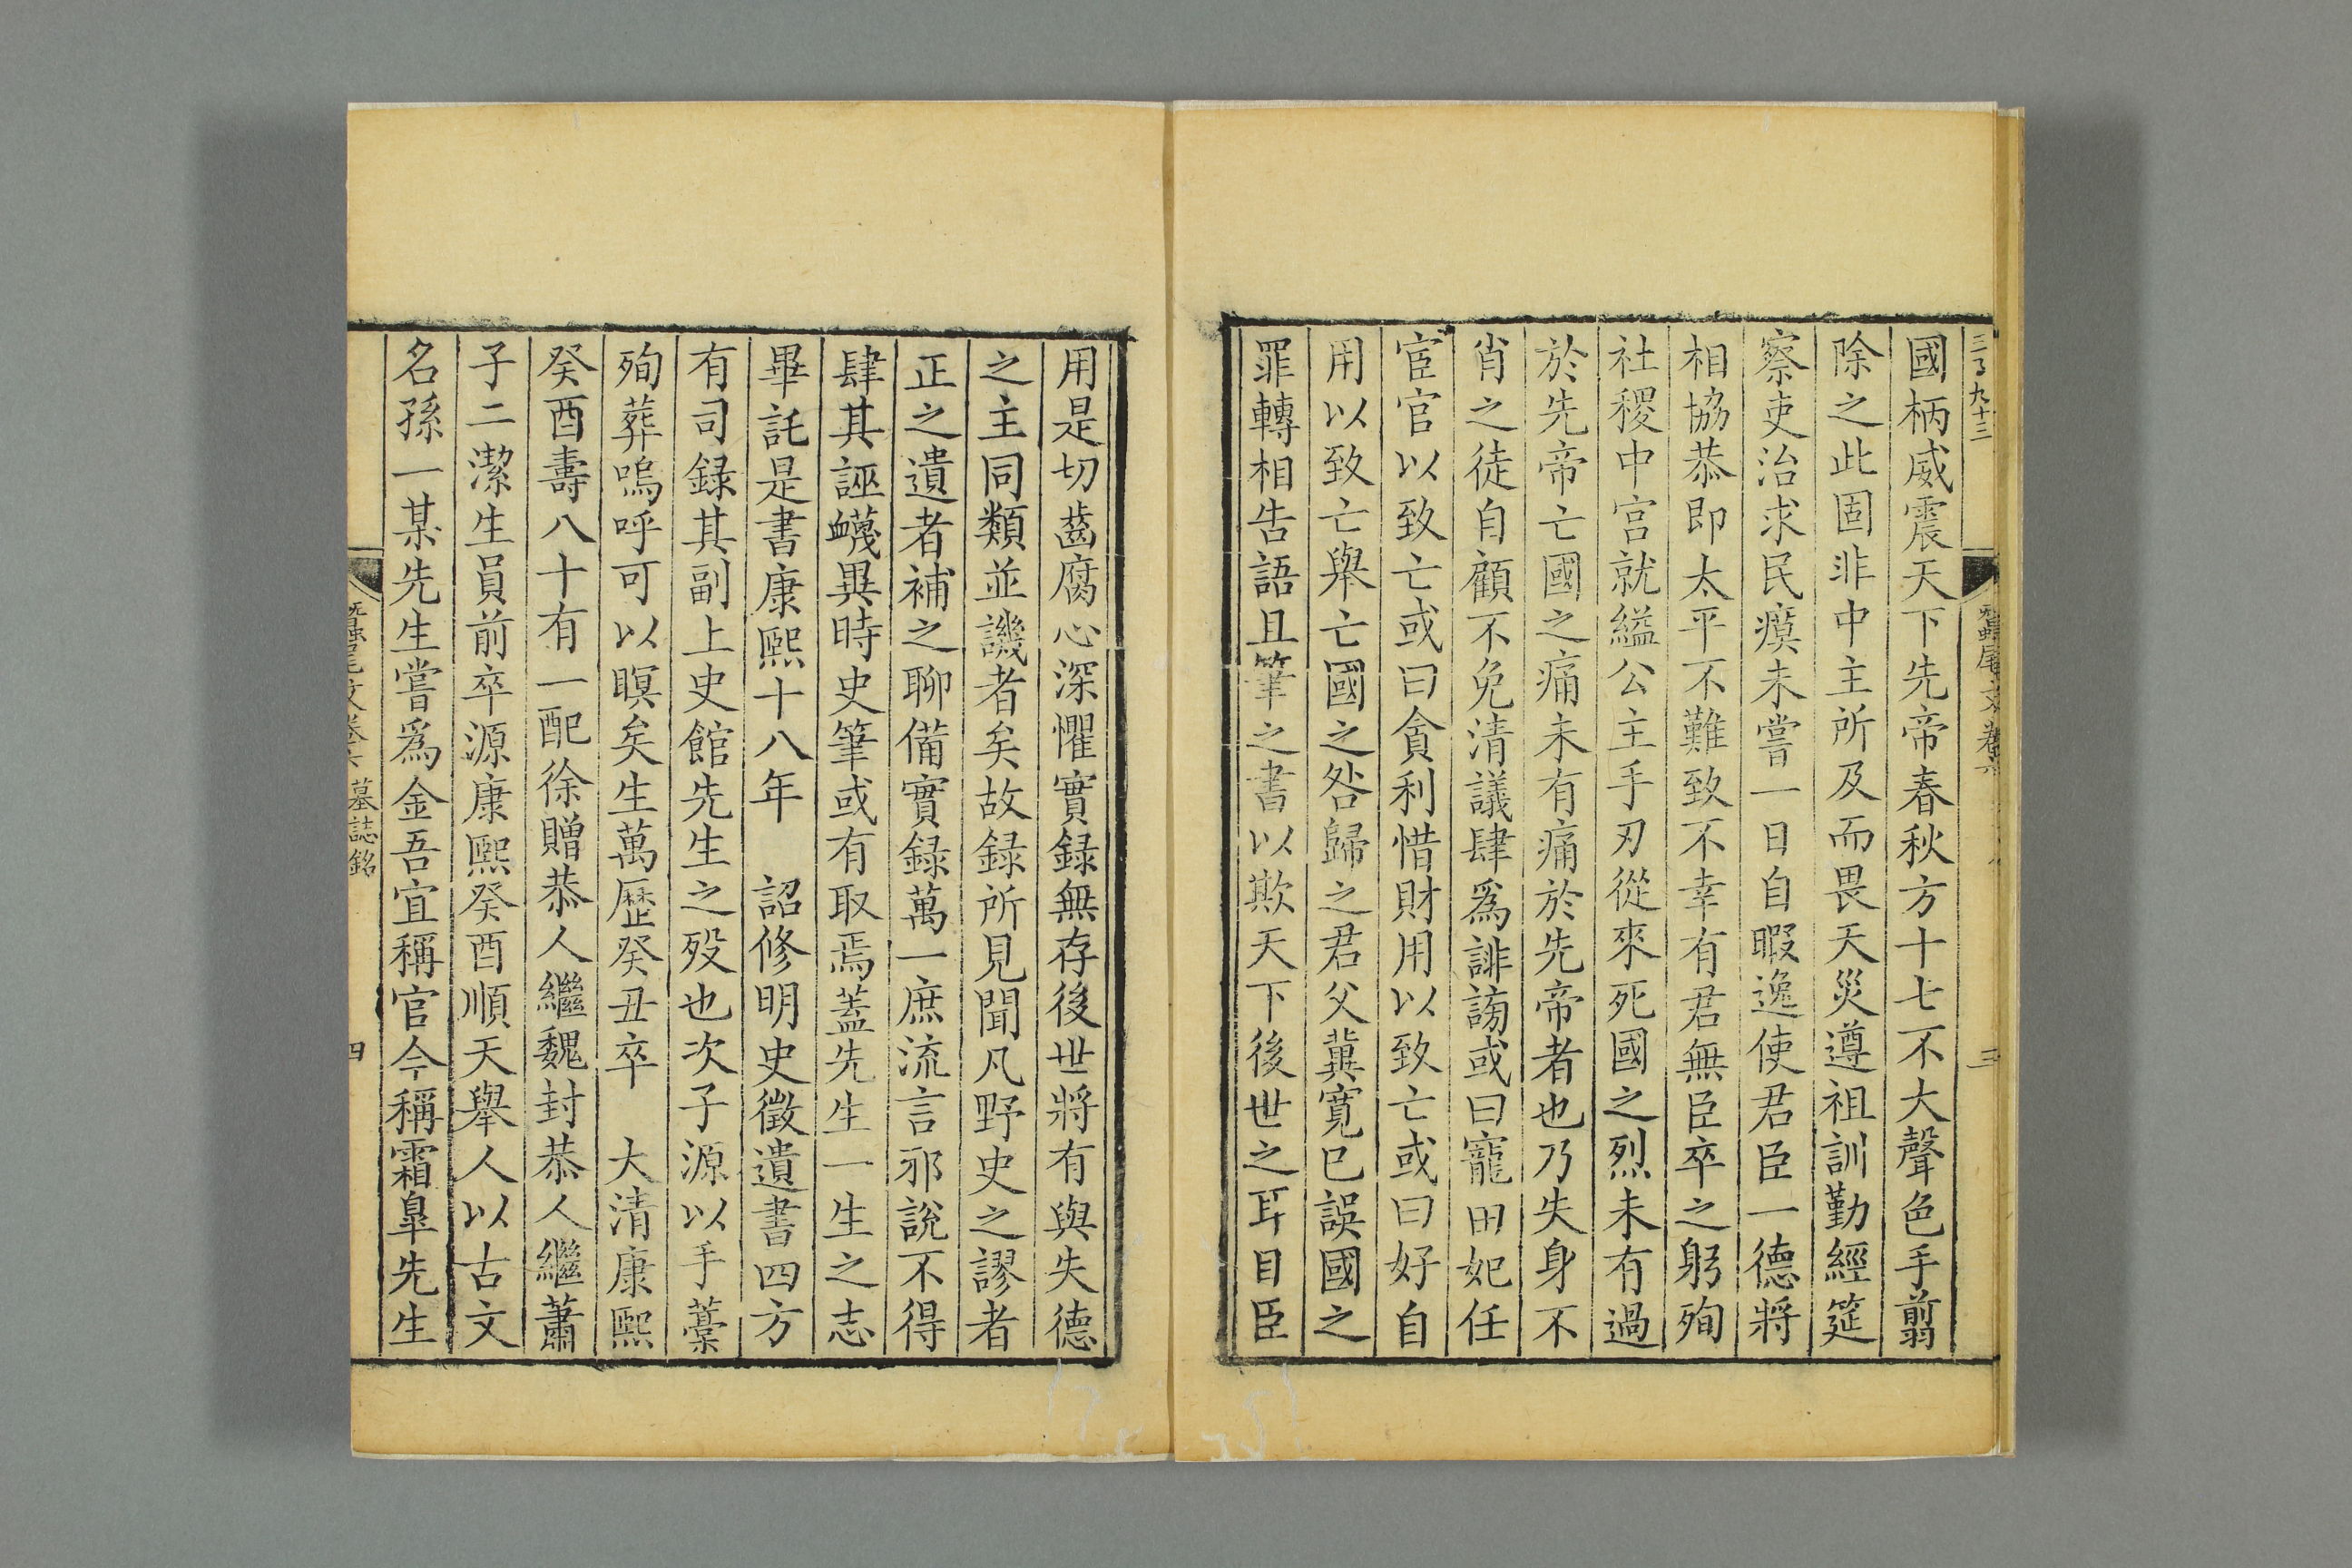 蠶尾文卷
三
國柄威震天下先帝春秋方十七不大聲色手翦
除之此固非中主所及而畏天災遵祖訓勤經筵
察吏治求民瘼未嘗一日自暇逸使君臣一德將
相協恭即太平不難致不幸有君無臣卒之躬殉
社稷中宮就縊公主手刃從來死國之烈未有過
於先帝亡國之痛未有痛於先帝者也乃失身不
肖之徒自顧不免清議肆爲誹謗或曰寵田妃任
宦官以致亡或曰貪利惜財用以致亡或曰好自
用以致亡舉亡國之咎歸之君父冀寬已誤國之
罪轉相告語且筆之書以欺天下後世之耳目臣
用是切齒腐心深懼實録無存後世將有與失德
之主同類並譏者矣故録所見聞凡野史之謬者
正之遺者補之聊備實録萬一庶流言邪說不得
肆其誣衊異時史筆或有取焉蓋先生一生之志
畢託是書康熙十八年 詔修明史徵遺書四方
有司録其副上史館先生之歿也次子源以手藁
殉葬嗚呼可以瞑矣生萬歷癸丑卒 大清康熙
癸酉壽八十有一配徐贈恭人繼魏封恭人繼蕭
子二潔生員前卒源康熙癸酉順天舉人以古文
名孫一某先生嘗爲金吾宜稱官今稱霜臯先生
蠶尾文卷 墓誌銘
四